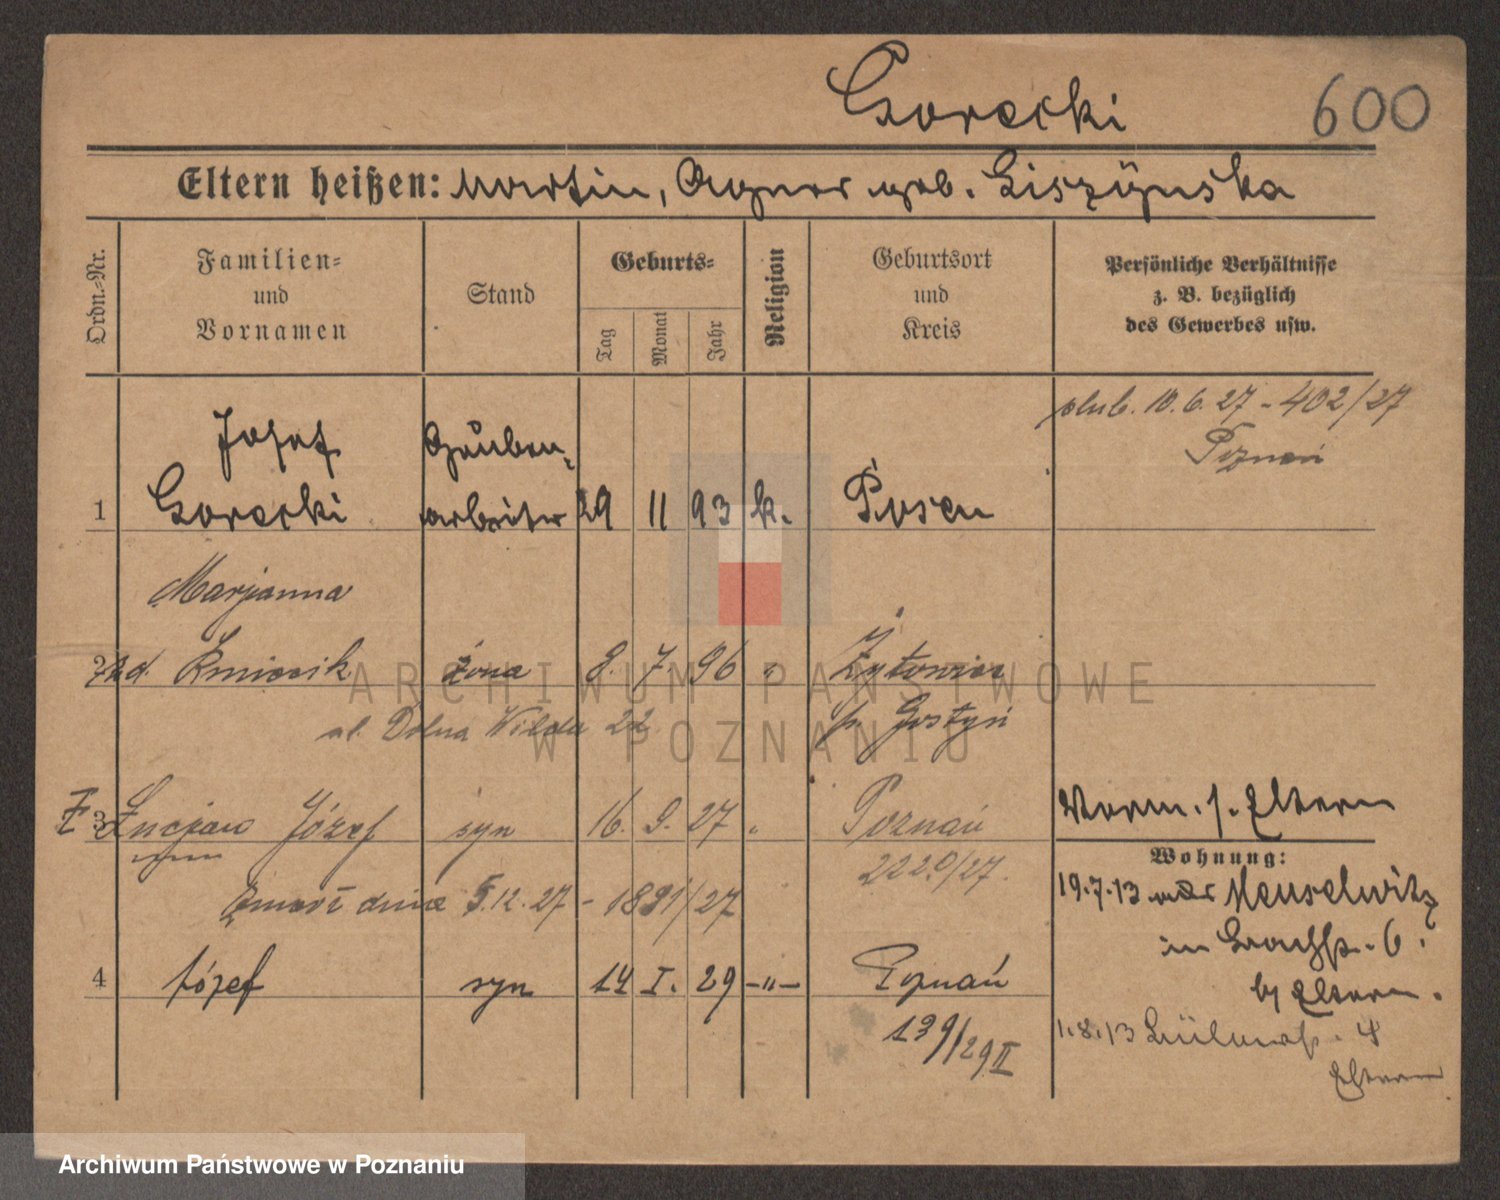 Gorecki
600
Eltern heißen: Martin, Agnes geb. Liszynska
Ordn.-Nr.
Familien-
und
Vornamen
Stand
Geburts-
Tag
Monat
Jahr
Religion
Geburtsort
und
Kreis
Persönliche Verhältnisse
z. B. bezüglich
des Gewerbes usw.
ślub. 10.6.27 - 402/27
Poznań
Josef
Gorecki
Gruben-
arbeiter
1
29 11 93 k. Posen
Marjanna
2 zd. Kmiecik żona 8. 7. 96 " Żytowiec
ul. Dolna Wilda 22
p. Gostyń
3 Lucjan Józef syn 16. 9. 27 " Poznań
Vorm. s. Eltern
Wohnung:
2220/27.
Zmarł dnia 5.12.27 - 1891/27
19.7.13 aus Meuselwitz
in Bachstr. 6.
4 Józef syn 14 I. 29 -"- Poznań
b/ Eltern.
139/29 II
1.8.13 4
Eltern
ARCHIWUM PAŃSTWOWE
W POZNANIU
Archiwum Państwowe w Poznaniu